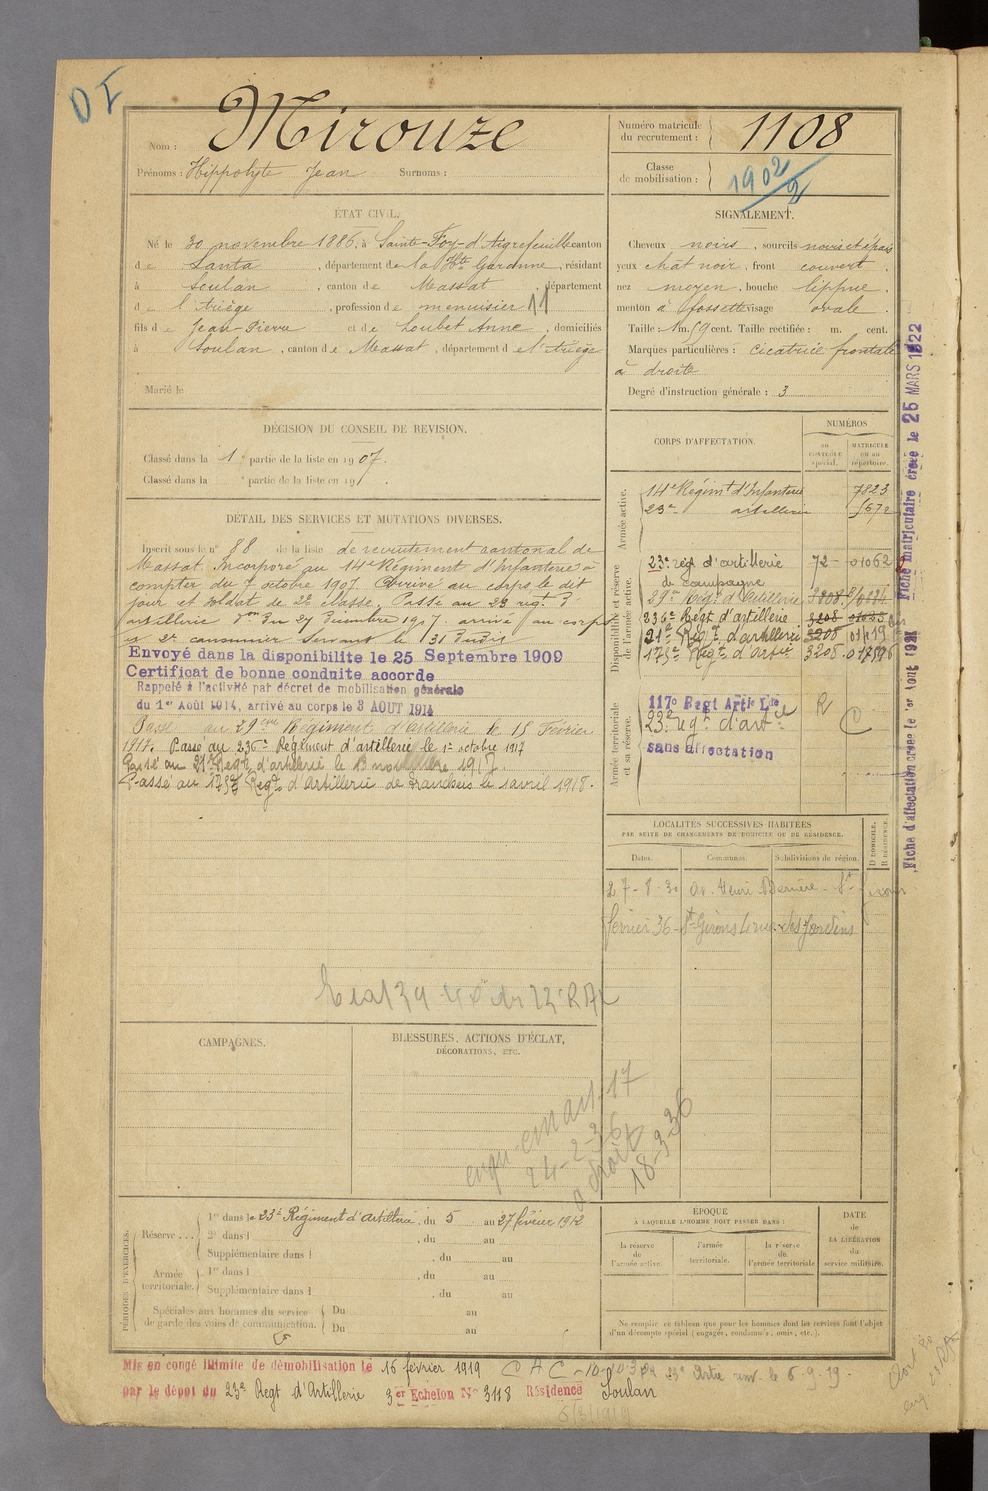 D I
Nom : Mirouze
Prénoms : Hippolyte Jean Surnoms :
Numéro matricule du recrutement : 1108
Classe de mobilisation : 1902
2
ÉTAT CIVIL.
Né le 30 novembre 1886, à Sainte-Foy-d'Aigrefeuille canton
de Lanta, département de la Hte Garonne, résidant
à Soulan, canton de Massat, département
de l'Ariège, profession de menuisier 11
fils de Jean-Pierre et de Loubet Anne, domiciliés
à Soulan, canton de Massat, département de l'Ariège
Marié le
SIGNALEMENT.
Cheveux noirs, sourcils noirs et épais
yeux chât noir, front couvert,
nez moyen, bouche lippue,
menton à fossette visage ovale.
Taille : 1 m. 59 cent. Taille rectifiée : m. cent.
Marques particulières : cicatrice frontale
à droite
Degré d'instruction générale : 3
DÉCISION DU CONSEIL DE REVISION.
Classé dans la 1e partie de la liste en 1907.
Classé dans la e partie de la liste en 19 .
DÉTAIL DES SERVICES ET MUTATIONS DIVERSES.
Inscrit sous le n° 88 de la liste de recrutement cantonal de
Massat. Incorporé au 14e Régiment d'Infanterie à
compter du 7 octobre 1907. Arrivé au corps le dit
jour et soldat de 2e classe. Passé au 23 régt d'
artillerie don du 27 Décembre 1907. arrivé au corps
et 2e canonnier servant le 31 dudit
Envoyé dans la disponibilite le 25 Septembre 1909
Certificat de bonne conduite accorde
Rappelé à l'activité par décret de mobilisation générale
du 1er Août 1914, arrivé au corps le 3 AOUT 1914
Passé au 29eme Régiment d'Artillerie le 15 Février
1917. Passé au 236e Régiment d'artillerie le 1er octobre 1917
Passé au 21e Regt d'artillerie le 13 novembre 1917.
Passé au 175e Regt d'Artillerie de Tranchées le 1 avril 1918.
CORPS D'AFFECTATION.
NUMÉROS
au contrôle spécial.
MATRICULE ou au répertoire.
Armée active.
14e Régimt d'Infanterie 7823
23e artillerie 5672
Disponibilité et réserve de l'armée active.
23e rég d'artillerie 72 - 01062
de campagne
29e Régt d'Artillerie 3208
236e Régt d'artillerie 3208
21e Régt d'artillerie 3208
175e Regt d'Artie 3208
Armée territoriale et sa réserve.
117e Regt Artie Lde R
23e regt d'artie C
sans affectation
Fiche matriculaire créée le 25 MARS 1922
Fiche d'affectation créée le 1er Aout 1921
LOCALITÉS SUCCESSIVES HABITÉES
PAR SUITE DE CHANGEMENTS DE DOMICILE OU DE RÉSIDENCE.
Dates. Communes. Subdivisions de région. D DOMICILE. R RÉSIDENCE.
27-8-30 av. Henri Bernère - St Girons
février 36 - St Girons 4 rue des Jardins
CAMPAGNES.
BLESSURES, ACTIONS D'ÉCLAT,
DÉCORATIONS, ETC.
24-2-36
18-3-36
PÉRIODES D'EXERCICES.
Réserve ... 1re dans le 23e Régiment d'Artillerie, du 5 au 27 février 1912
2e dans l , du au
Supplémentaire dans l , du au
Armée territoriale. 1re dans l , du au
Supplémentaire dans l , du au
Spéciales aux hommes du service de garde des voies de communication. Du au
Du au
ÉPOQUE
À LAQUELLE L'HOMME DOIT PASSER DANS :
la réserve de l'armée active.
l'armée territoriale.
la réserve de l'armée territoriale
DATE de LA LIBÉRATION du service militaire.
Ne remplir ce tableau que pour les hommes dont les services font l'objet
d'un décompte spécial (engagés, condamnés, omis, etc.).
Mis en congé illimité de démobilisation le 16 février 1919
par le dépot du 23e Regt d'Artillerie 3er Echelon N° 3118 Résidence Soulan